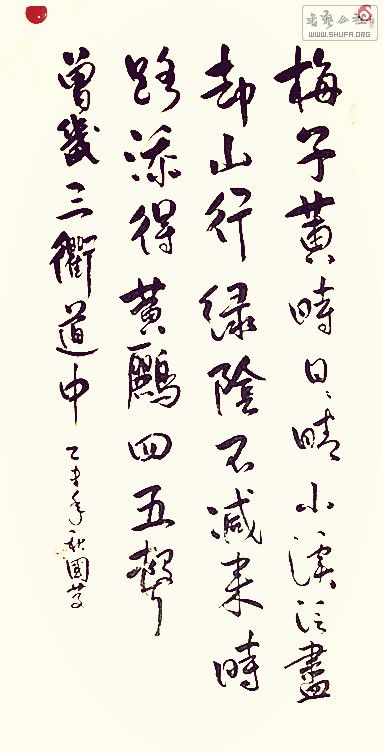 梅子黄時日、晴小溪泛盡
却山行緑陰不減来時
路添得黄鸝四五聲
曾幾三衢道中
乙未年秋國
书艺公社
WWW.SHUFA.ORG